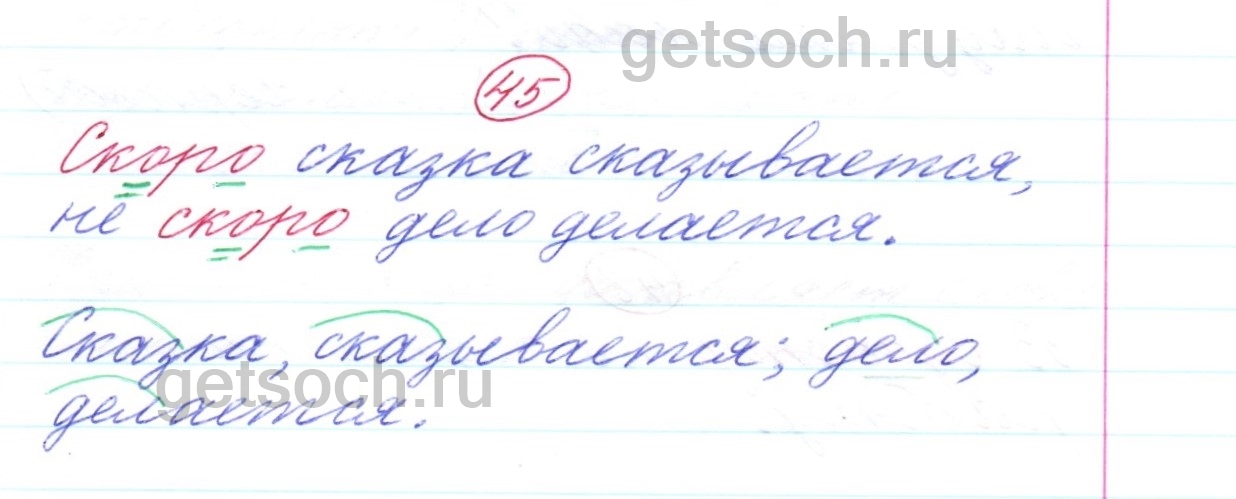 getsoch.ru
45
Скоро сказка сказывается,
не скоро дело делается.
Сказка, сказывается; дело,
getsoch.ru
делается.